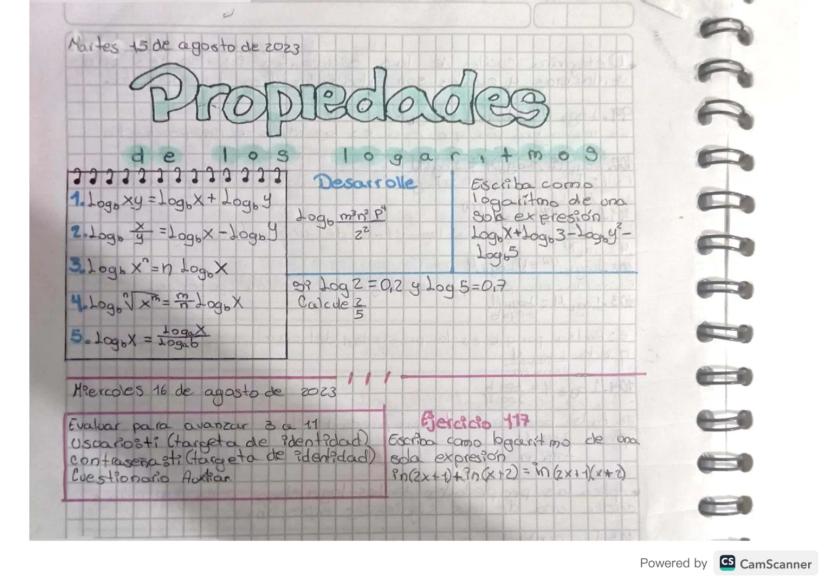 Martes 15 de agosto de 2023
Propiedades
de los logaritmos
1. Log_b xy = Log_b x + Log_b y
2. Log_b x/y = Log_b x - Log_b y
3. Log_b xⁿ = n Log_b x
4. Log_b ⁿ√xᵐ = m/n Log_b x
5. Log_b x =
Desarrolle
Log_b
z²
Escriba como
logaritmo de una
sola expresión
Log_b x + Log_b 3 - Log_b y² -
Log_b 5
si Log 2 = 0,2 y Log 5 = 0,7
Calcule 2/5
Miercoles 16 de agosto de 2023
Evaluar para avanzar 3 a 11
(targeta de identidad)
(targeta de identidad)
Cuestionario
Ejercicio 117
Escriba como logaritmo de una
sola expresión
in(2x+1)+in(x+2) = in(2x+1)(x+2)
Powered by CS CamScanner